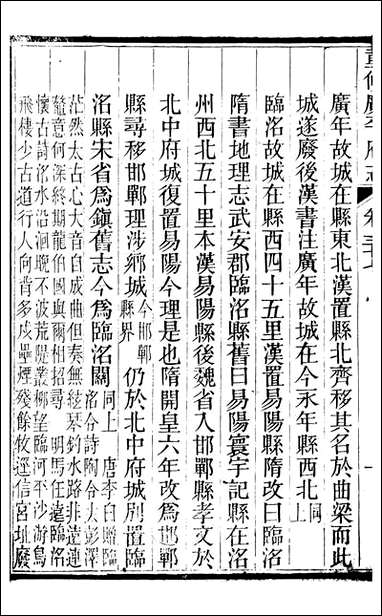 重修廣平府志 卷三十七
廣年故城在縣東北漢置縣北齊移其名於曲梁而此
城遂廢後漢書注廣年故城在今永年縣西北同上
臨洺故城在縣西四十五里漢置易陽縣隋改曰臨洺
隋書地理志武安郡臨洺縣舊曰易陽寰宇記縣在洺
州西北五十里本漢易陽縣後魏省入邯鄲縣孝文於
北中府城復置易陽今理是也隋開皇六年改為邯鄲
縣尋移邯鄲理涉鄉城今邯鄲縣界仍於北中府城別置臨
洺縣宋省為鎮舊志今為臨洺關同上 唐李白贈臨洺令詩陶令大彭澤
茫然太古心大音自成曲但奏無絃琴釣水路非遠連
鼇意何深終期龍伯國與爾相招尋 明馬任遠臨洺
懷古詩洺水沿洄晚不波荒隄叢柳望臨河平沙游鳥
飛棲少古道行人向肯多戍壘煙殘餘牧逕信宮址廢